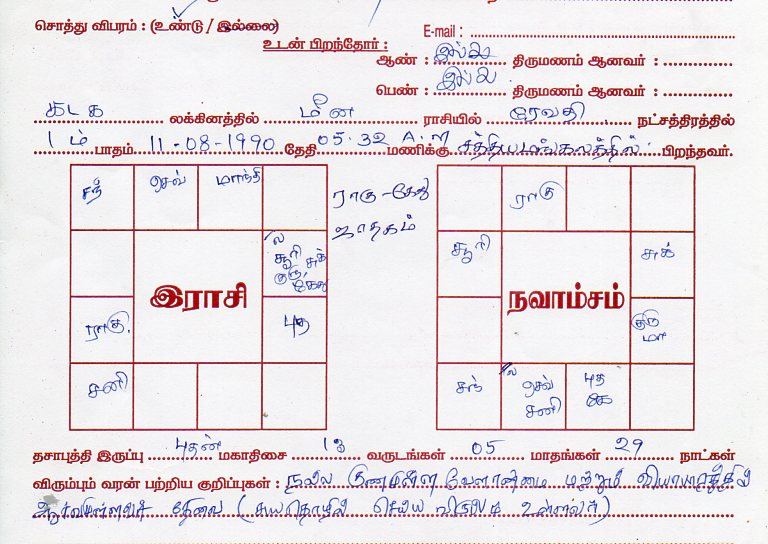 சொத்து விபரம் : (உண்டு / இல்லை)
E-mail :
உடன் பிறந்தோர் :
ஆண் : இல்லை திருமணம் ஆனவர் :
பெண் : இல்லை திருமணம் ஆனவர் :
கடக லக்கினத்தில் மீன ராசியில் ரேவதி நட்சத்திரத்தில்
1 ம் பாதம் 11-08-1990 தேதி 05.32 A.M மணிக்கு சத்தியமங்கலத்தில் பிறந்தவர்.
சந் செவ் மாந்தி
ராகு-கேது
ஜாதகம்
ல
சூரி சுக்
குரு, கேது
இராசி
ராகு
புத
சனி
ராகு
சூரி
சுக்
நவாம்சம்
குரு
மா
சந்
ல
செவ்
சனி
புத
கே
தசாபுத்தி இருப்பு புதன் மகாதிசை 13 வருடங்கள் 05 மாதங்கள் 29 நாட்கள்
விரும்பும் வரன் பற்றிய குறிப்புகள் : நல்ல குணமுள்ள வேளாண்மை மற்றும் வியாபாரத்தில்
ஆர்வமுள்ளவர் தேவை (சுயதொழில் செய்ய விருப்பம் உள்ளவர்)